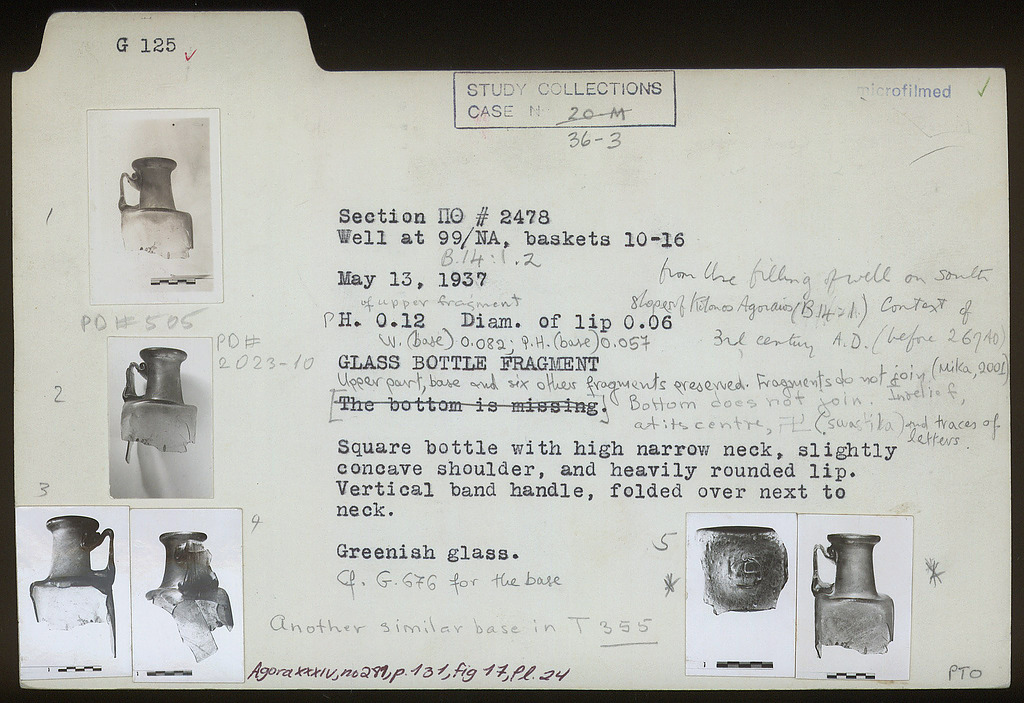 G 125
STUDY COLLECTIONS
CASE N 20-M
36-3
microfilmed
1
Section ΠΘ # 2478
Well at 99/ΝΑ, baskets 10-16
B.14:1.2
May 13, 1937
from the filling of well on south
slope of Kolonos Agoraios (B.14:2.1) Context of
3rd century A.D. (before 267 AD)
(Mika, 2001)
of upper fragment
PH. 0.12 Diam. of lip 0.06
W. (base) 0.082; P.H. (base) 0.057
PD# 505
PD#
2023-10
GLASS BOTTLE FRAGMENT
Upper part, base and six other fragments preserved. Fragments do not join
[The bottom is missing.
Bottom does not join. In relief,
at its centre, 卍 (swastika) and traces of
letters.
2
Square bottle with high narrow neck, slightly
concave shoulder, and heavily rounded lip.
Vertical band handle, folded over next to
neck.
3
4
5
Greenish glass.
Cf. G.676 for the base
Another similar base in T 355
Agora XXXIV, no 281, p. 131, fig 17, Pl. 24
PTO